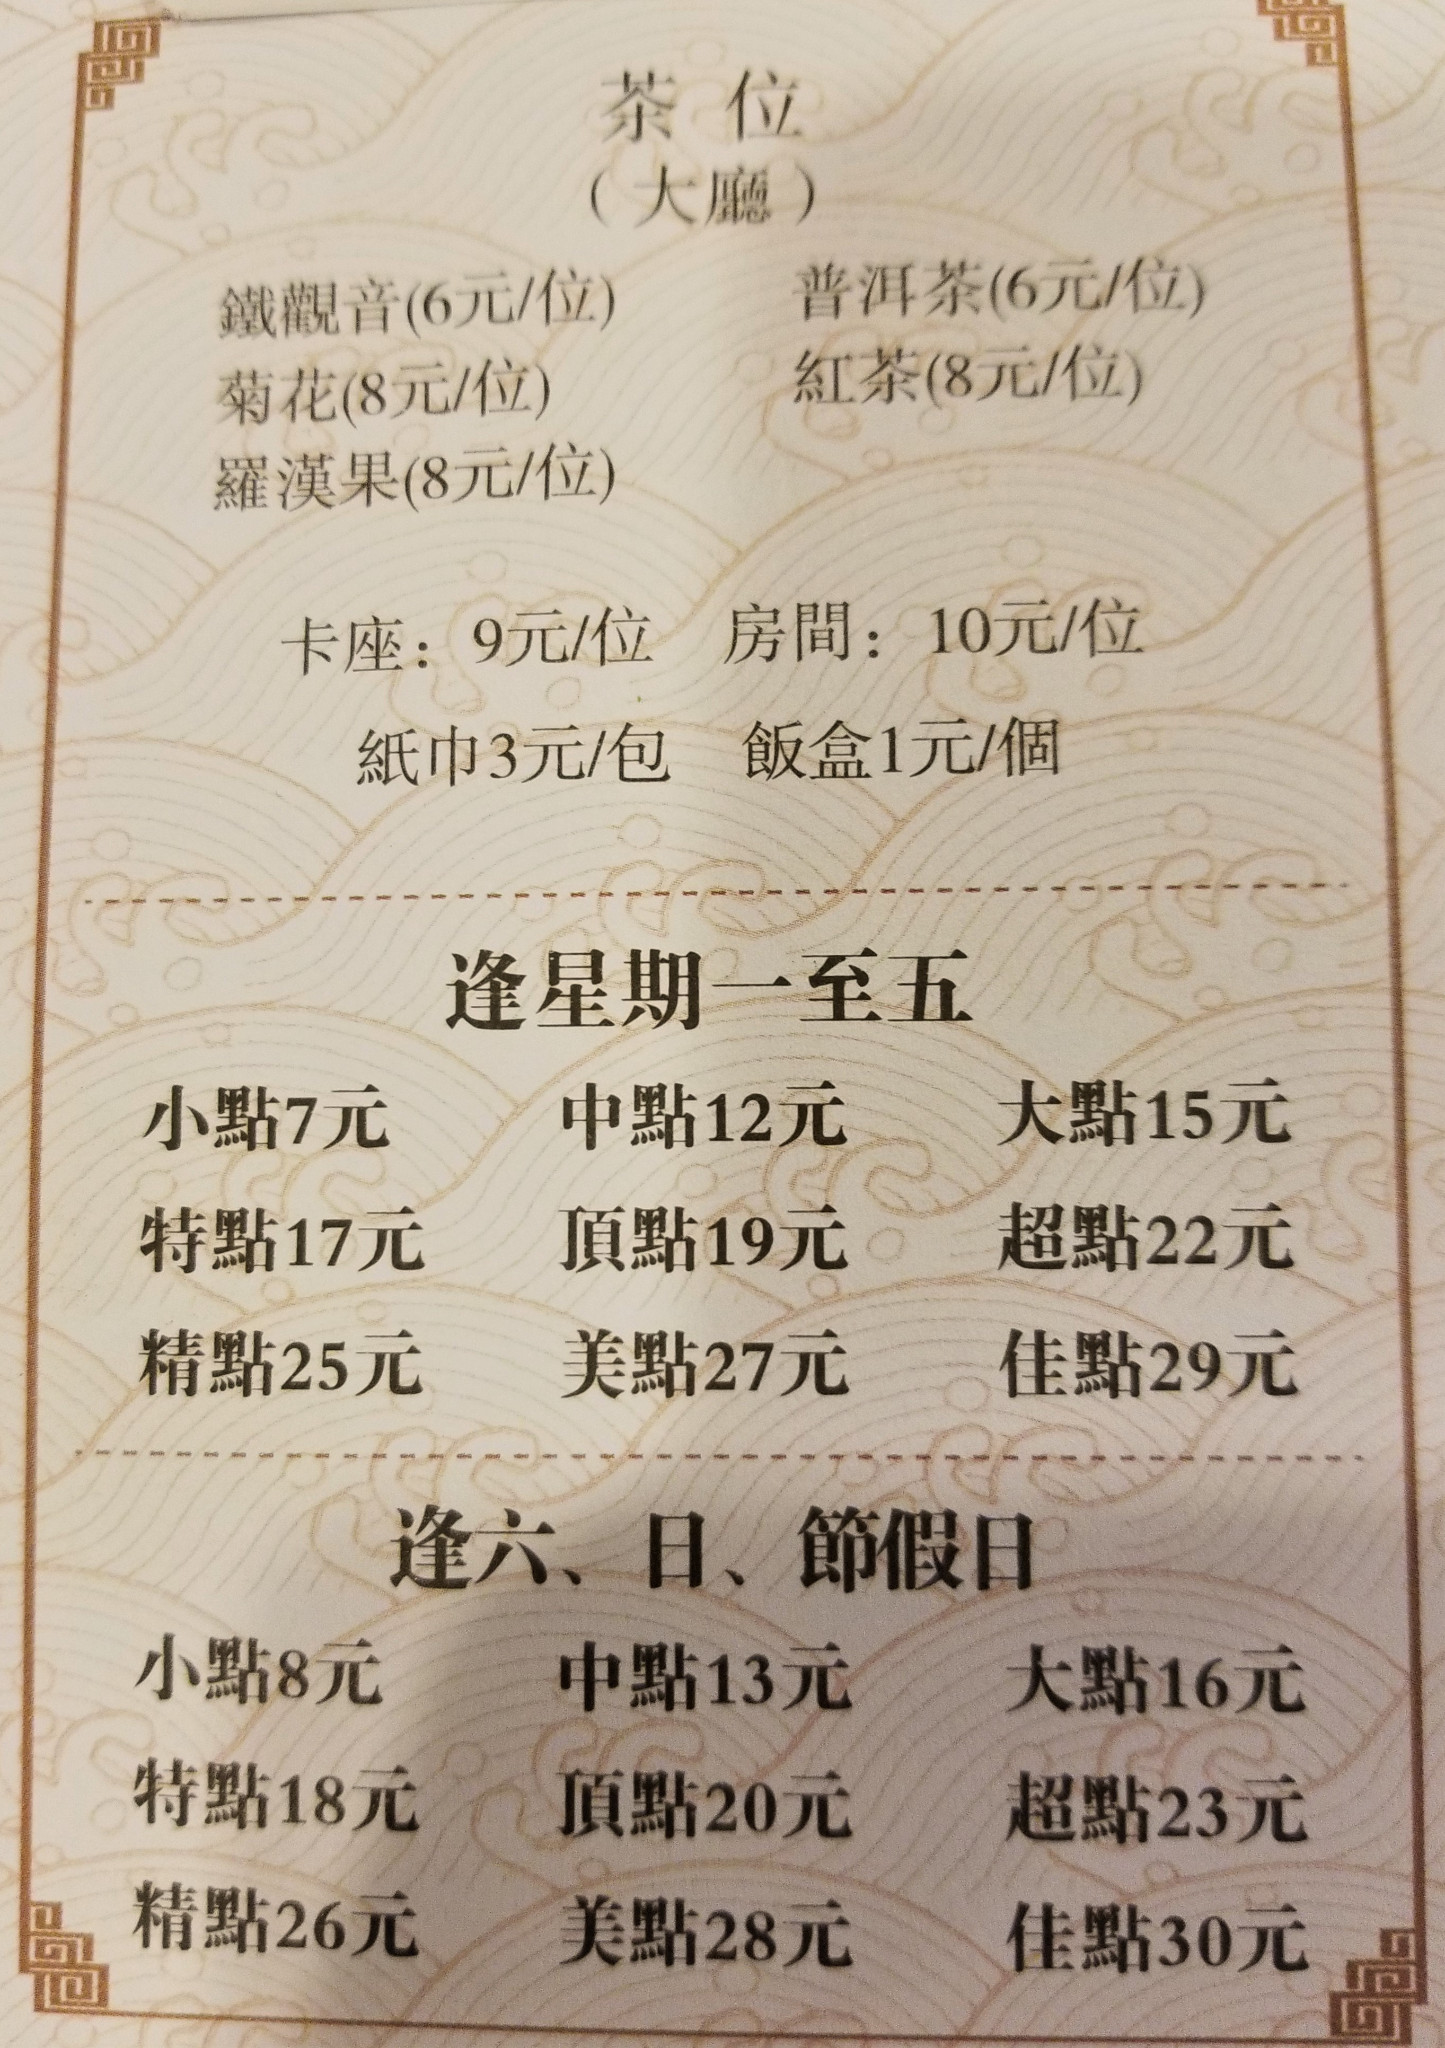 茶 位
（大廳）
鐵觀音(6元/位) 普洱茶(6元/位)
菊花(8元/位) 紅茶(8元/位)
羅漢果(8元/位)
卡座：9元/位 房間：10元/位
紙巾3元/包 飯盒1元/個
逢星期一至五
小點7元 中點12元 大點15元
特點17元 頂點19元 超點22元
精點25元 美點27元 佳點29元
逢六、日、節假日
小點8元 中點13元 大點16元
特點18元 頂點20元 超點23元
精點26元 美點28元 佳點30元